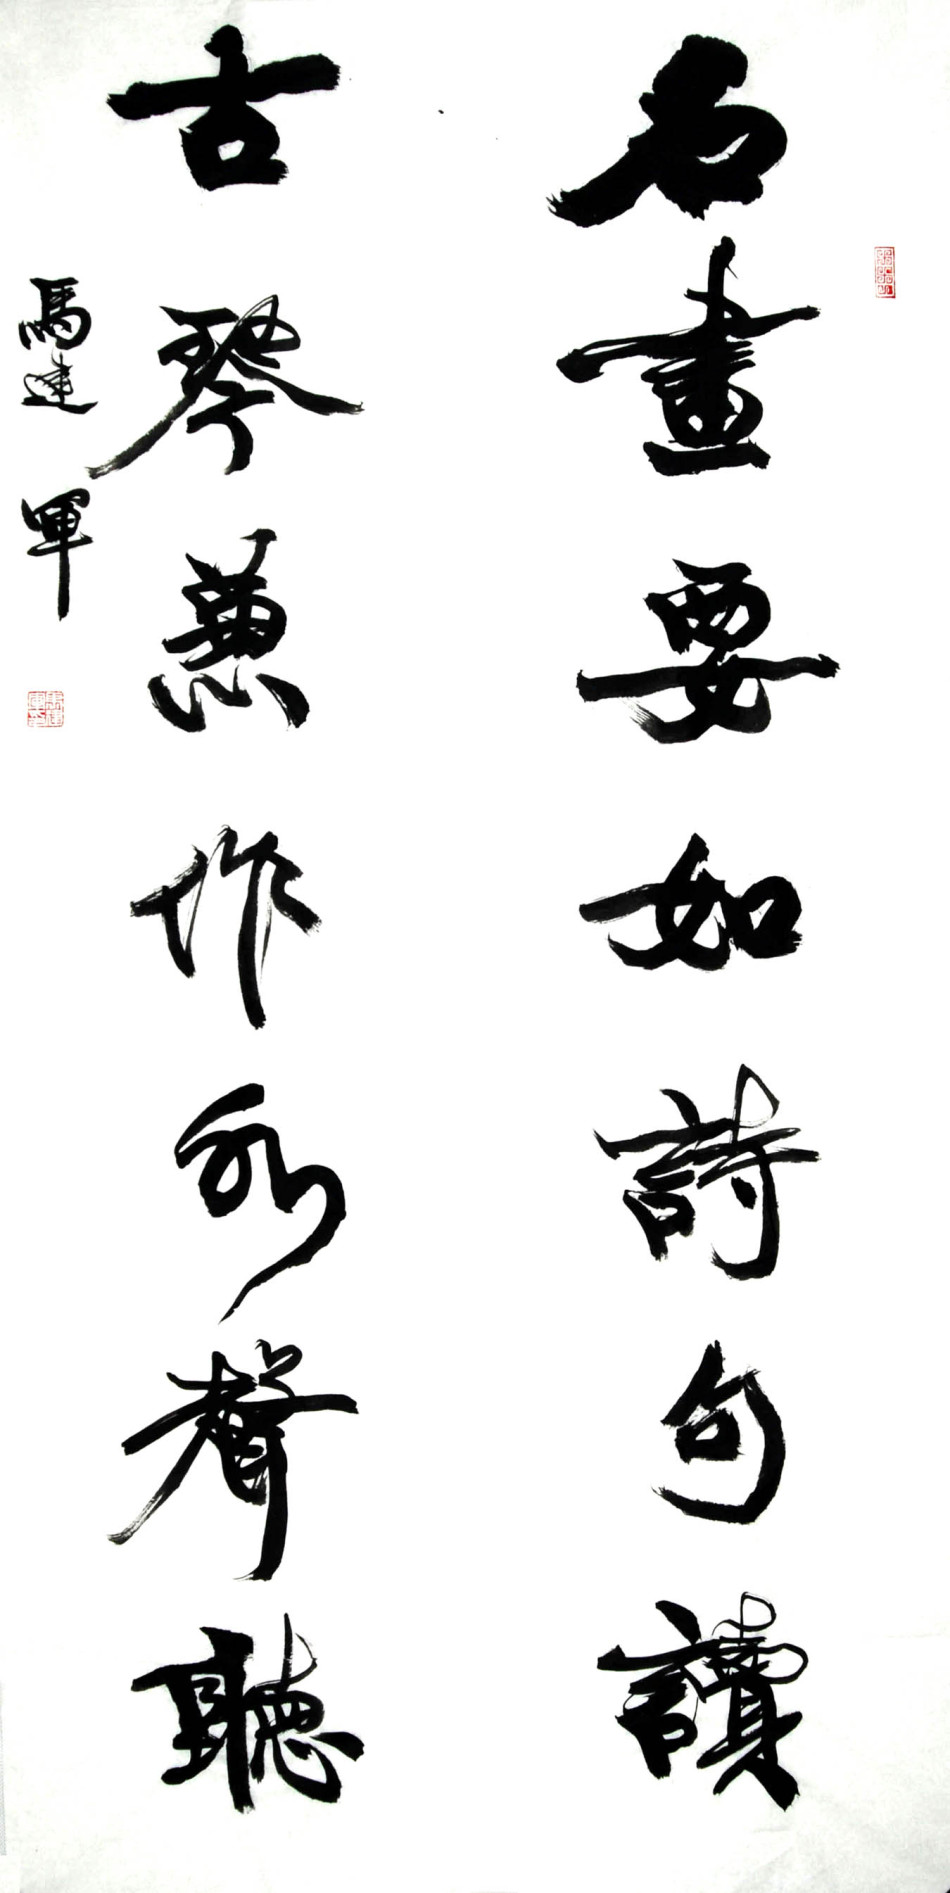 名畫要如詩句讀
古琴兼作水聲聽
馬建軍